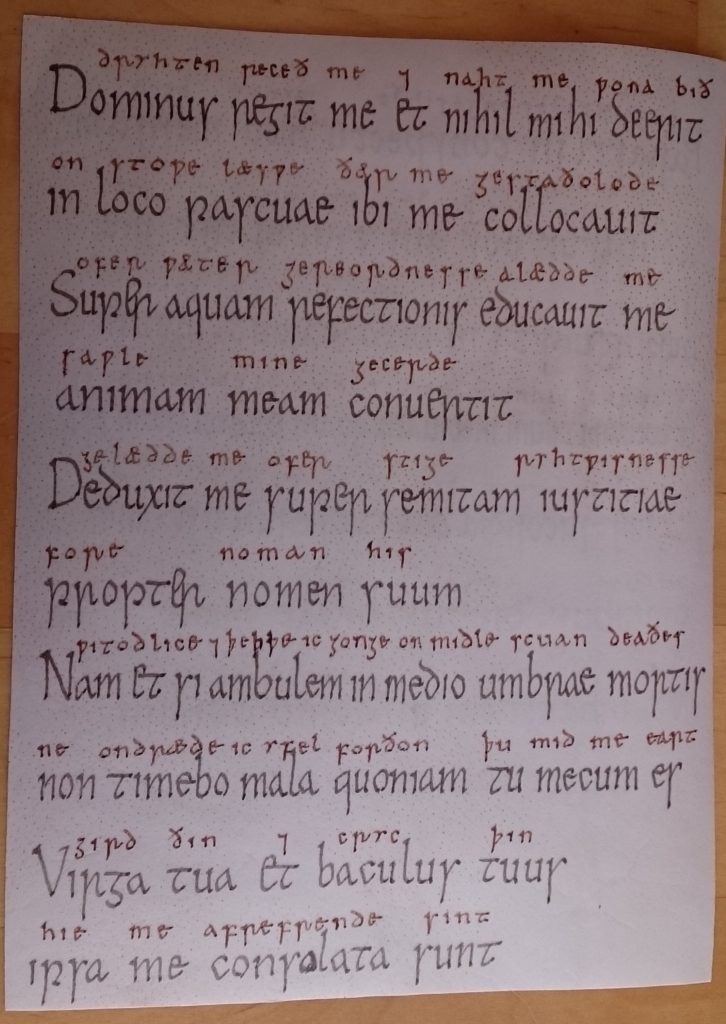 dryhten receð me ⁊ naht me ƿona bið
Dominus regit me et nihil mihi deerit
on stoƿe læsƿe ðær me gestaðolode
in loco pascuae ibi me collocauit
ofer ƿæter gereordnesse alædde me
Super aquam refectionis educauit me
saƿle mine gecerde
animam meam conuertit
gelædde me ofer stige ryhtƿisnesse
Deduxit me super semitam iustitiae
fore noman his
propter nomen suum
ƿitodlice ⁊ ic gonge on midle scuan deaðes
Nam et si ambulem in medio umbrae mortis
ne ondræde ic yfel forðon þu mid me eart
non timebo mala quoniam tu mecum es
gird ðin ⁊ cryc þin
Virga tua et baculus tuus
hie me afrefrende sint
ipsa me consolata sunt